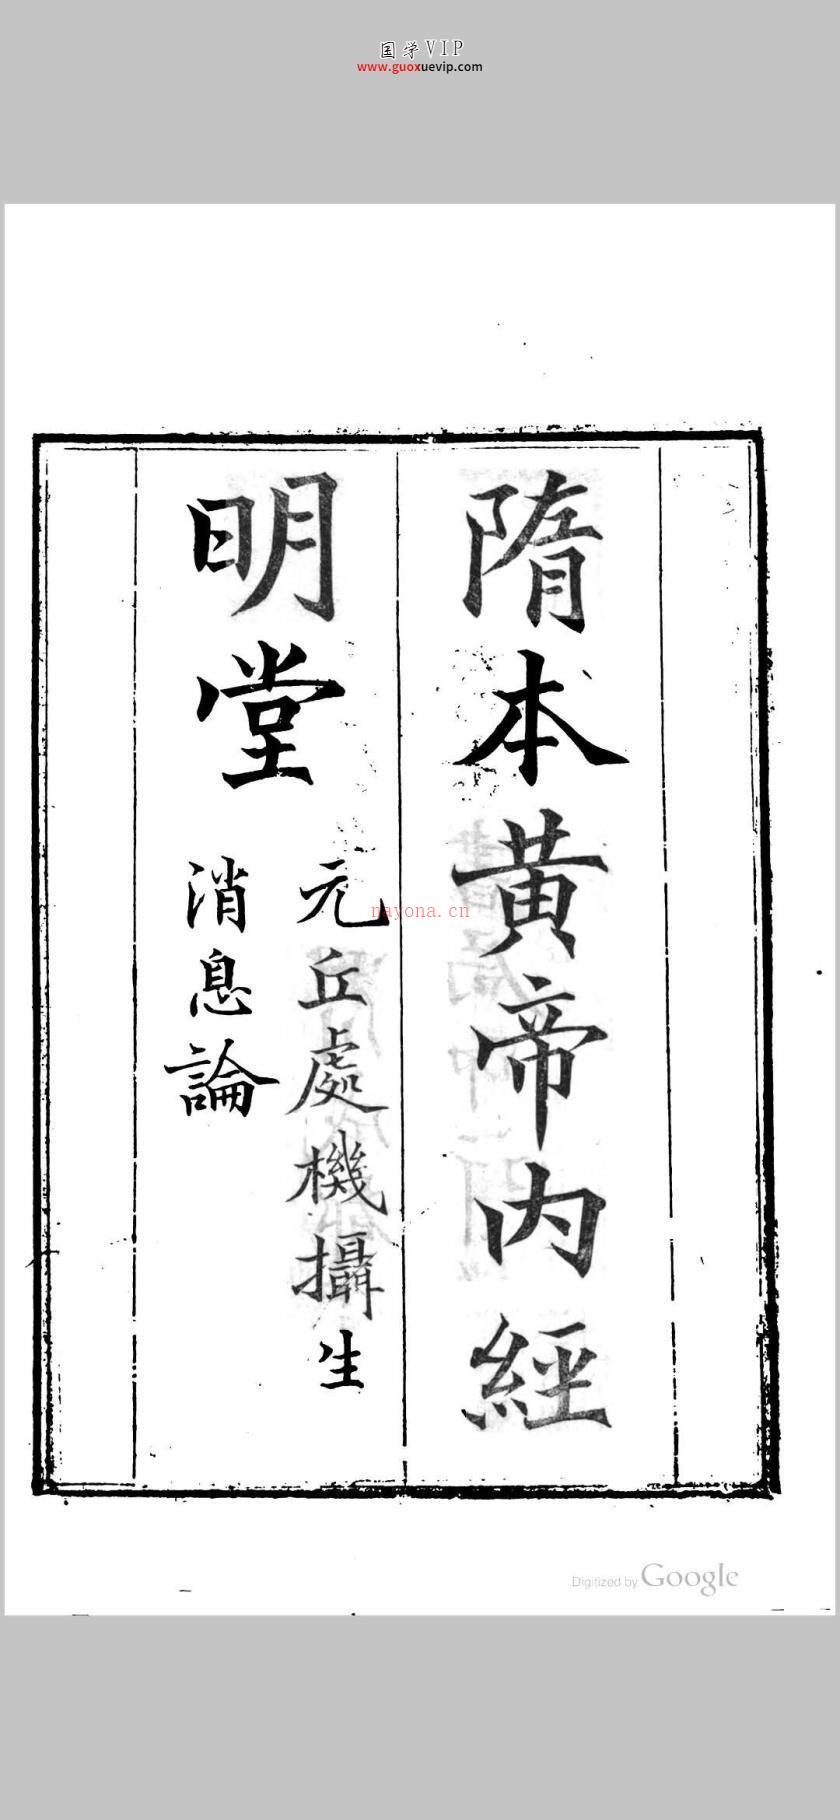 国学VIP
www.guoxuevip.com
隋本黄帝内經
明堂
元丘處機攝生
消息論
nayona.cn
Digitized by Google